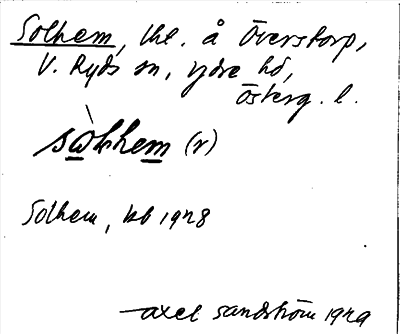 Solhem, lht. å Överstorp,
V. Ryds sn, Ydre hd,
Österg. l.
sòlhem (r)
Solhem, kb 1928
Axel Sandström 1929